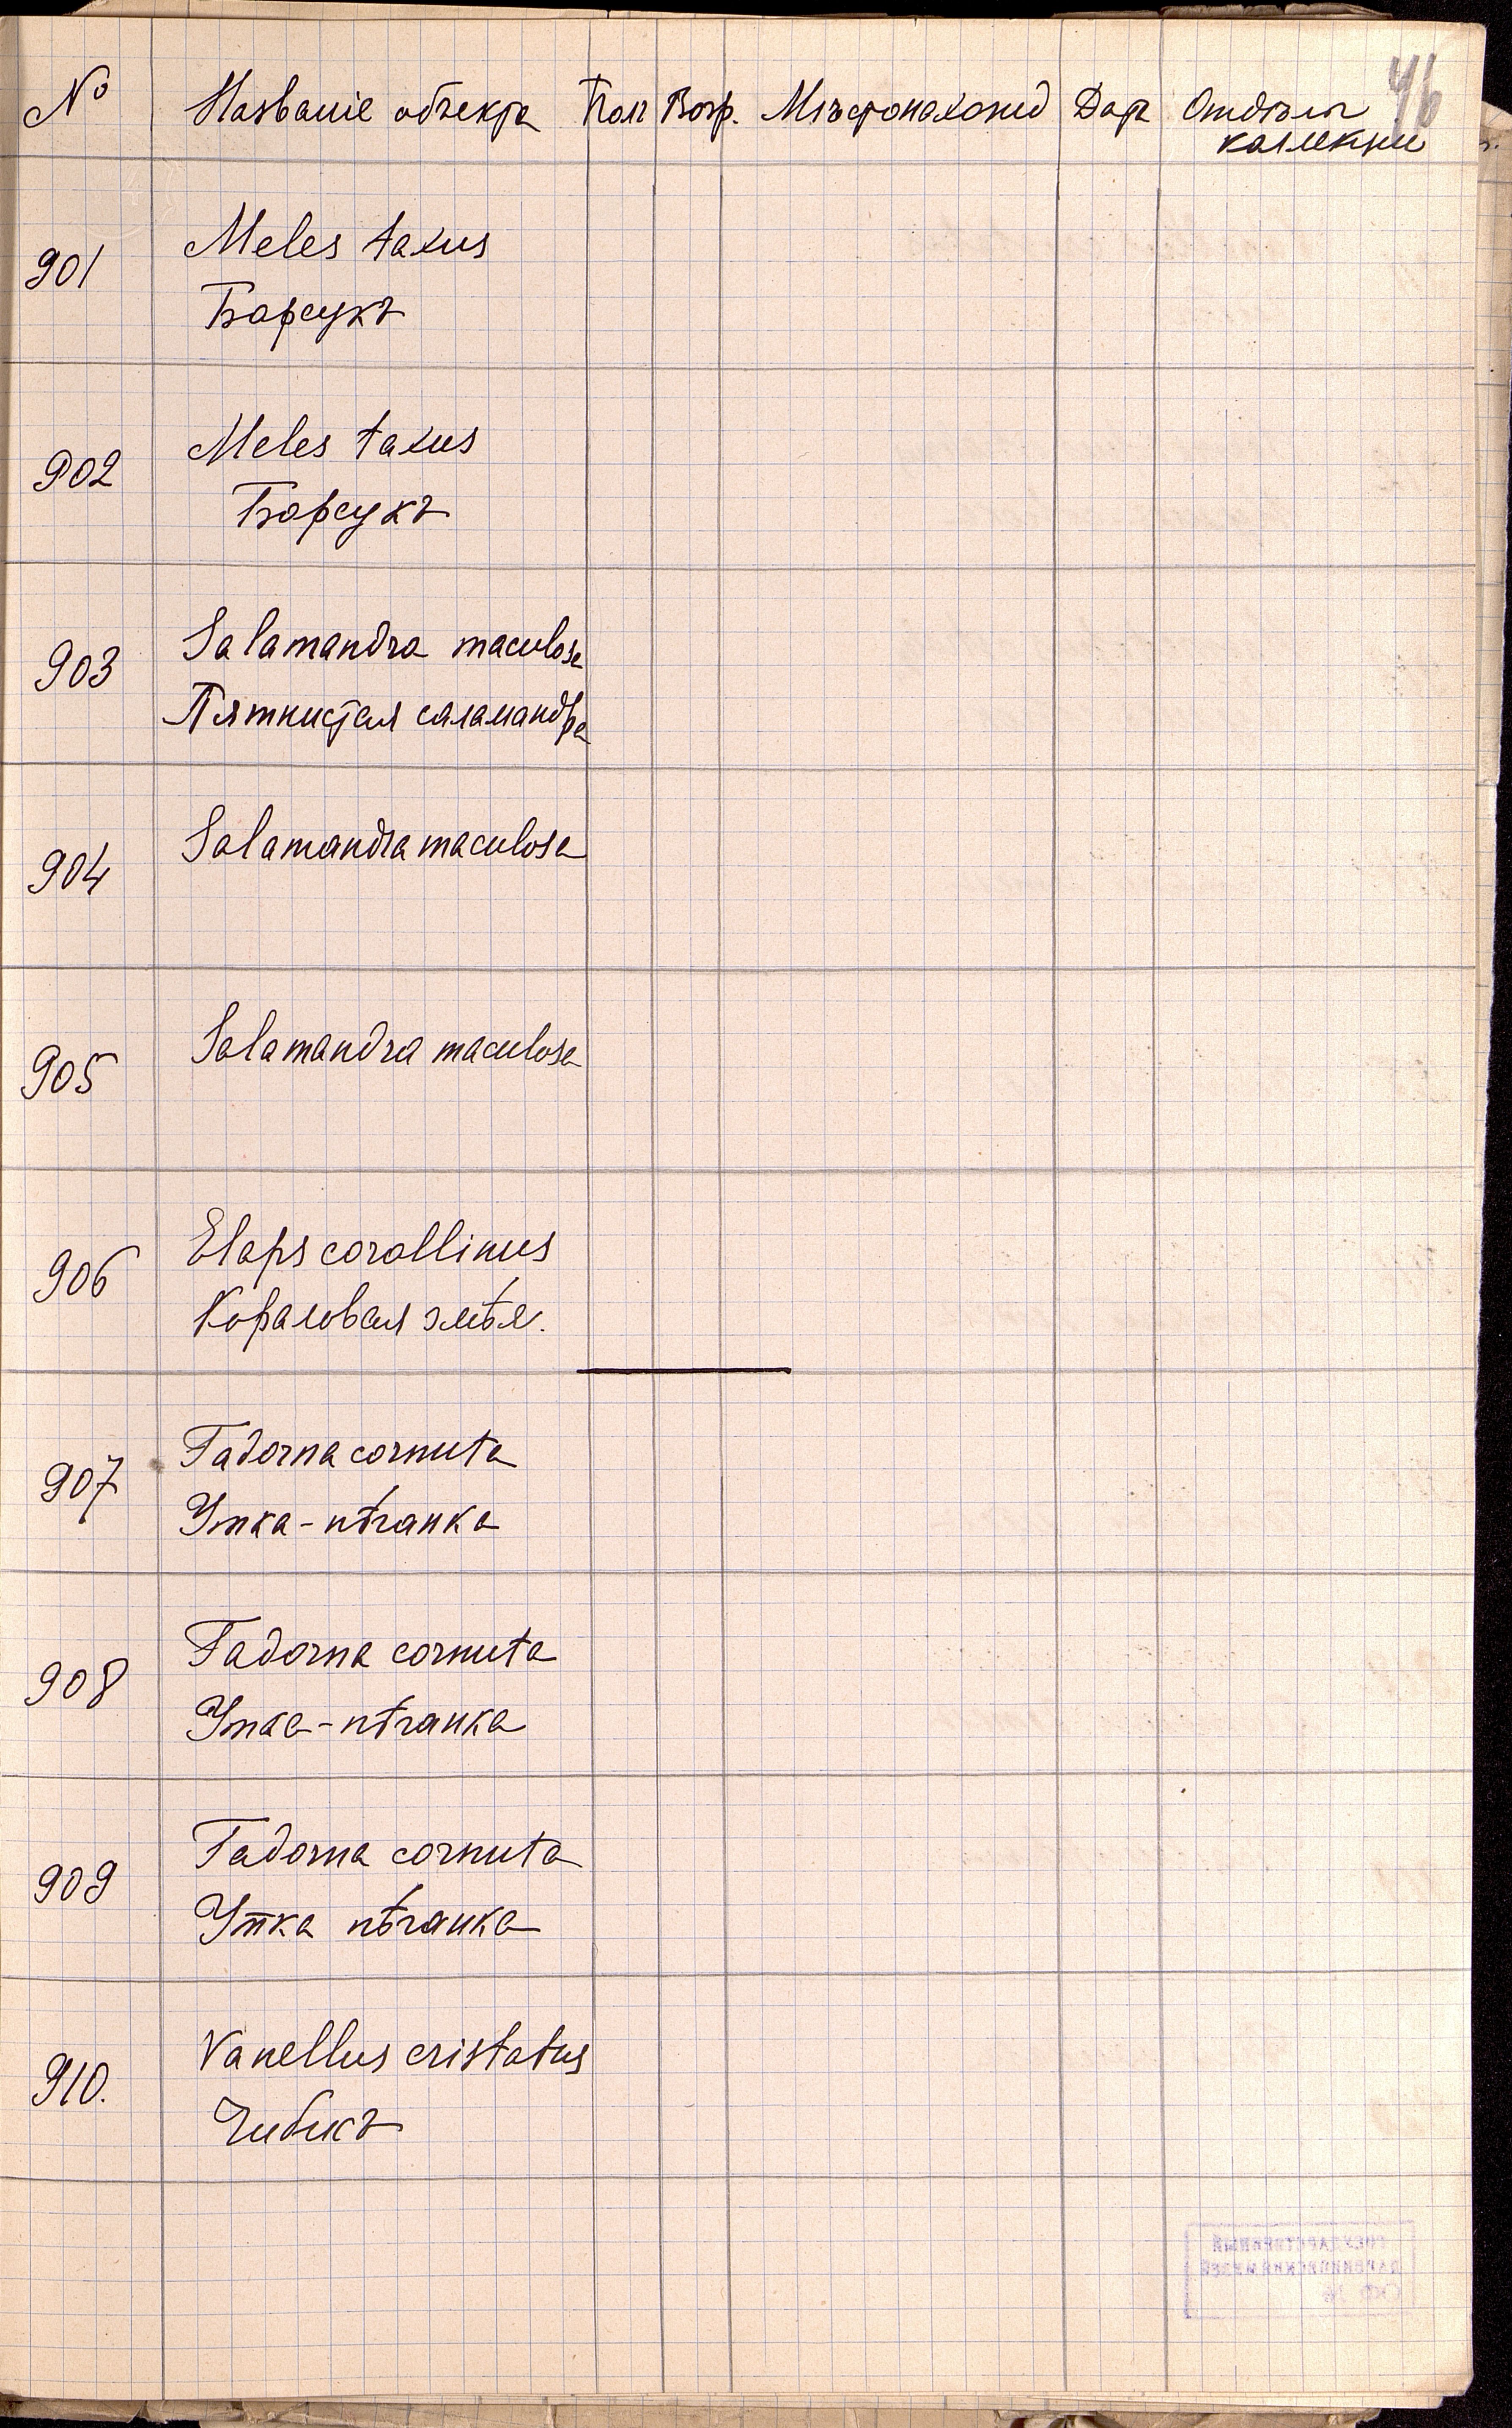 46
№ Названіе объекта Полъ Возр. Мѣстонахожд Дата Отдѣлъ
коллекціи
901 Meles taxus
Барсукъ
902 Meles taxus
Барсукъ
903 Salamandra maculosa
Пятнистая саламандра
904 Salamandra maculosa
905 Salamandra maculosa
906 Elaps corallinus
Кораловая змѣя.
907 Tadorna cornuta
Утка-пѣганка
908 Tadorna cornuta
Утка-пѣганка
909 Tadorna cornuta
Утка пѣганка
910. Vanellus cristatus
Чибисъ
ГОСУДАРСТВЕННЫЙ
ДАРВИНОВСКИЙ МУЗЕЙ